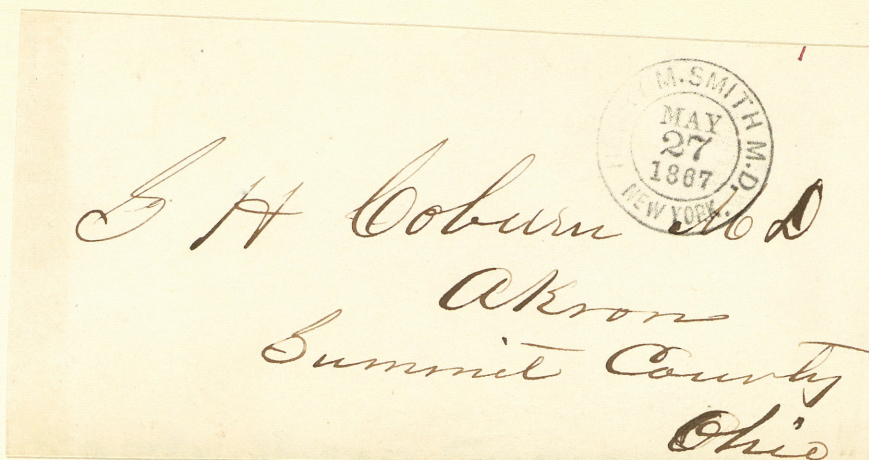 M. SMITH M.D.
MAY
27
1867
NEW YORK.
G H Coburn M D
Akron
Summit County
Ohio